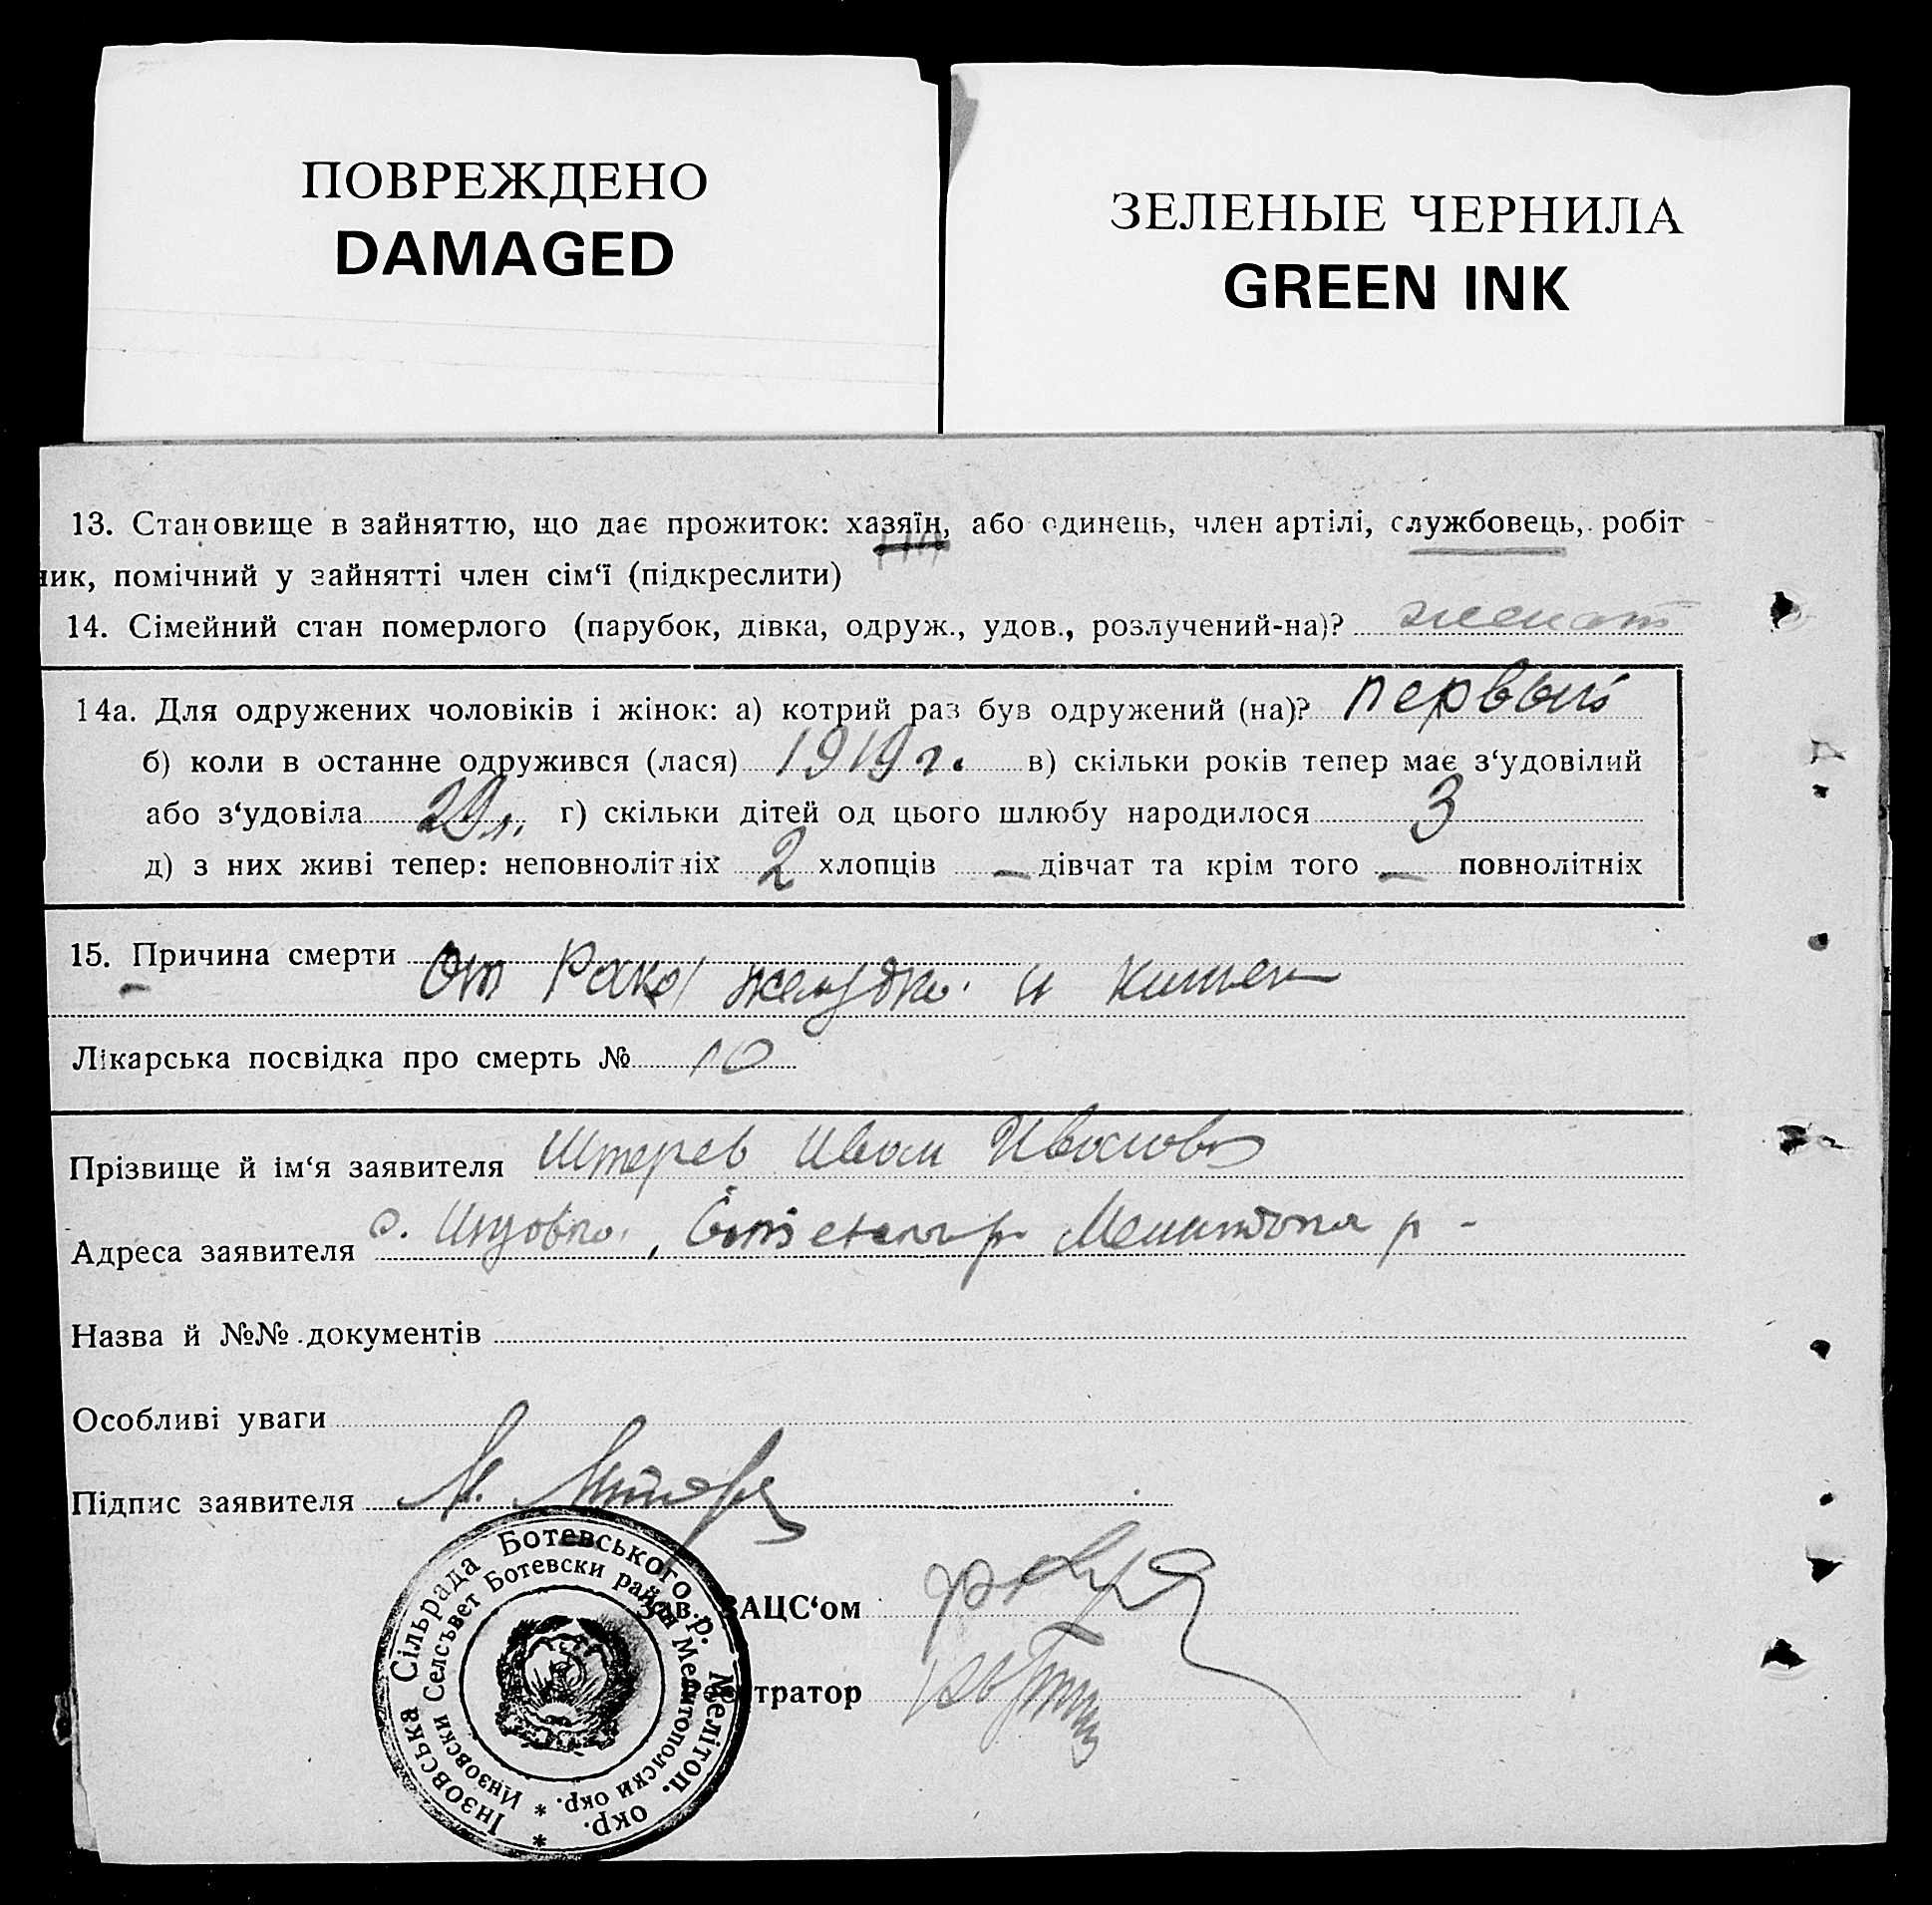 ПОВРЕЖДЕНО
DAMAGED
ЗЕЛЕНЫЕ ЧЕРНИЛА
GREEN INK
13. Становище в зайняттю, що дає прожиток: хазяїн, або одинець, член артілі, службовець, робіт
ник, помічний у зайнятті член сім‘ї (підкреслити)
14. Сімейний стан померлого (парубок, дівка, одруж., удов., розлучений-на)? женат
14а. Для одружених чоловіків і жінок: а) котрий раз був одружений (на)? первый
б) коли в останнє одружився (лася) 1919 г. в) скільки років тепер має з‘удовілий
або з‘удовіла 29 л. г) скільки дітей од цього шлюбу народилося 3
д) з них живі тепер: неповнолітніх 2 хлопців — дівчат та крім того — повнолітніх
15. Причина смерти
От Рака желудка и кишек
Лікарська посвідка про смерть № 10
Прізвище й ім‘я заявителя Штерев Иван Иванов
Адреса заявителя с. Инзовка, р. Мелитополя р -
Назва й №№ документів
Особливі уваги
Підпис заявителя
Зав. ЗАЦС‘ом
тратор
Інзовська Сільрада Ботевського р. Мелітоп. окр. *
Инзовски Селсъвет Ботевски район Мелитополски окр. *